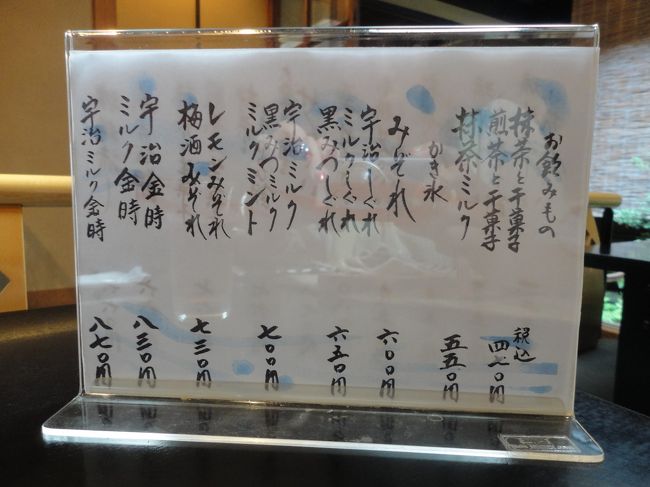 お飲みもの
税込
抹茶と干菓子
煎茶と干菓子
四七〇円
抹茶ミルク
五五〇円
かき氷
みぞれ
六〇〇円
宇治しぐれ
ミルクしぐれ
黒みつしぐれ
六五〇円
宇治ミルク
黒みつミルク
ミルクミント
七〇〇円
レモンみぞれ
梅酒みぞれ
七三〇円
宇治金時
ミルク金時
八三〇円
宇治ミルク金時
八七〇円